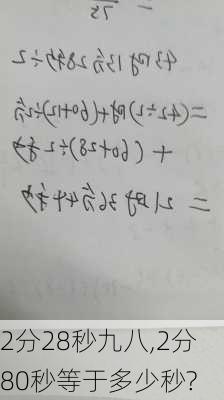 43时13分28秒÷2
=(42÷2)时+(60+12)÷2分
+(60+28)÷2秒
=21时36分44秒
2分28秒九八,2分
80秒等于多少秒?